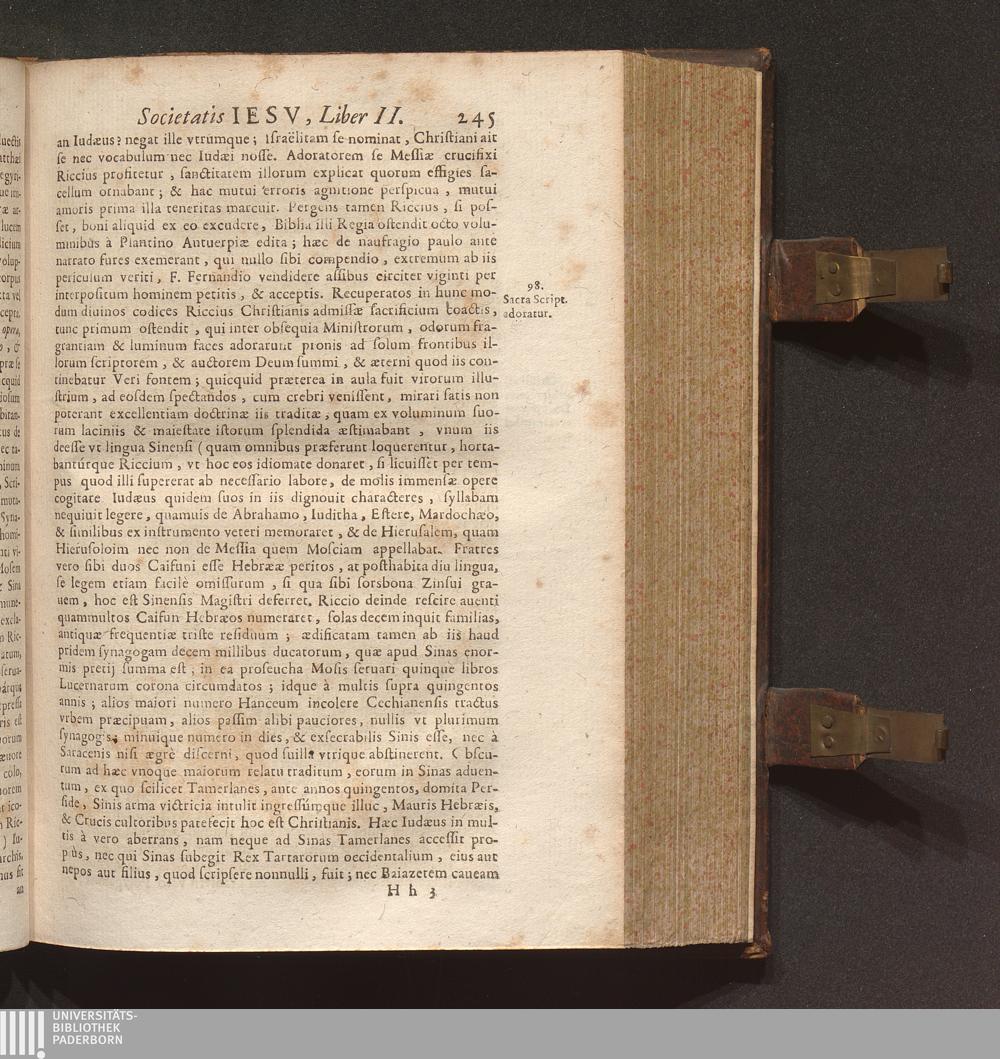 Societatis IESV, Liber II. 245
an Iudæus? negat ille vtrúmque; Israëlitam se nominat, Christiani ait
se nec vocabulum nec Iudæi nosse. Adoratorem se Messiæ crucifixi
Riccius profitetur, sanctitatem illorum explicat quorum effigies sa-
cellum ornabant; & hac mutui erroris agnitione perspicua, mutui
amoris prima illa teneritas marcuit. Pergens tamen Riccius, si pos-
set, boni aliquid ex eo excudere, Biblia illi Regia ostendit octo volu-
minibus à Plantino Antuerpiæ edita; hæc de naufragio paulo ante
narrato fures exemerant, qui nullo sibi compendio, extremum ab iis
periculum veriti, F. Fernandio vendidere assibus circiter viginti per
interpositum hominem petitis, & acceptis. Recuperatos in hunc mo-
dum diuinos codices Riccius Christianis admissæ sacrificium coactis,
tunc primum ostendit, qui inter obsequia Ministrorum, odorum fra-
grantiam & luminum faces adorarunt pronis ad solum frontibus il-
lorum scriptorem, & auctorem Deum summi, & æterni quod iis con-
tinebatur Veri fontem; quicquid præterea in aula fuit virorum illu-
strium, ad eosdem spectandos, cum crebri venissent, mirari satis non
poterant excellentiam doctrinæ iis traditæ, quam ex voluminum suo-
rum laciniis & maiestate istorum splendida æstimabant, vnum iis
deesse vt lingua Sinensi (quam omnibus præferunt loquerentur, horta-
bantúrque Riccium, vt hoc eos idiomate donaret, si licuisset per tem-
pus quod illi supererat ab necessario labore, de molis immensæ opere
cogitare Iudæus quidem suos in iis dignouit characteres, syllabam
nequiuit legere, quamuis de Abrahamo, Iuditha, Estere, Mardochæo,
& similibus ex instrumento veteri memoraret, & de Hierusalem, quam
Hierusoloim nec non de Messia quem Mosciam appellabat. Fratres
vero sibi duos Caifuni esse Hebrææ peritos, at posthabita diu lingua,
se legem etiam facilè omissurum, si qua sibi sorsbona Zinsui gra-
uem, hoc est Sinensis Magistri deferret. Riccio deinde rescire auenti
quammultos Caifun Hebræos numeraret, solas decem inquit familias,
antiquæ frequentiæ triste residuum; ædificatam tamen ab iis haud
pridem synagogam decem millibus ducatorum, quæ apud Sinas enor-
mis pretij summa est; in ea proseucha Mosis seruari quinque libros
Lucernarum corona circumdatos; idque à multis supra quingentos
annis; alios maiori numero Hanceum incolere Cechianensis tractus
vrbem præcipuam, alios passim alibi pauciores, nullis vt plurimum
synagogis; minuique numero in dies, & exsecrabilis Sinis esse, nec à
Saracenis nisi ægrè discerni, quod suilla vtrique abstinerent. Obscu-
rum ad hæc vnoque maiorum relatu traditum, eorum in Sinas aduen-
tum, ex quo scilicet Tamerlanes, ante annos quingentos, domita Per-
side, Sinis arma victricia intulit ingressúmque illuc, Mauris Hebræis,
& Crucis cultoribus patefecit hoc est Christianis. Hæc Iudæus in mul-
tis à vero aberrans, nam neque ad Sinas Tamerlanes accessit pro-
piùs, nec qui Sinas subegit Rex Tartarorum occidentalium, eius aut
nepos aut filius, quod scripsere nonnulli, fuit; nec Baiazetem caueam
H h 3
98.
Sacra Script.
adoratur.
UNIVERSITÄTS-
BIBLIOTHEK
PADERBORN